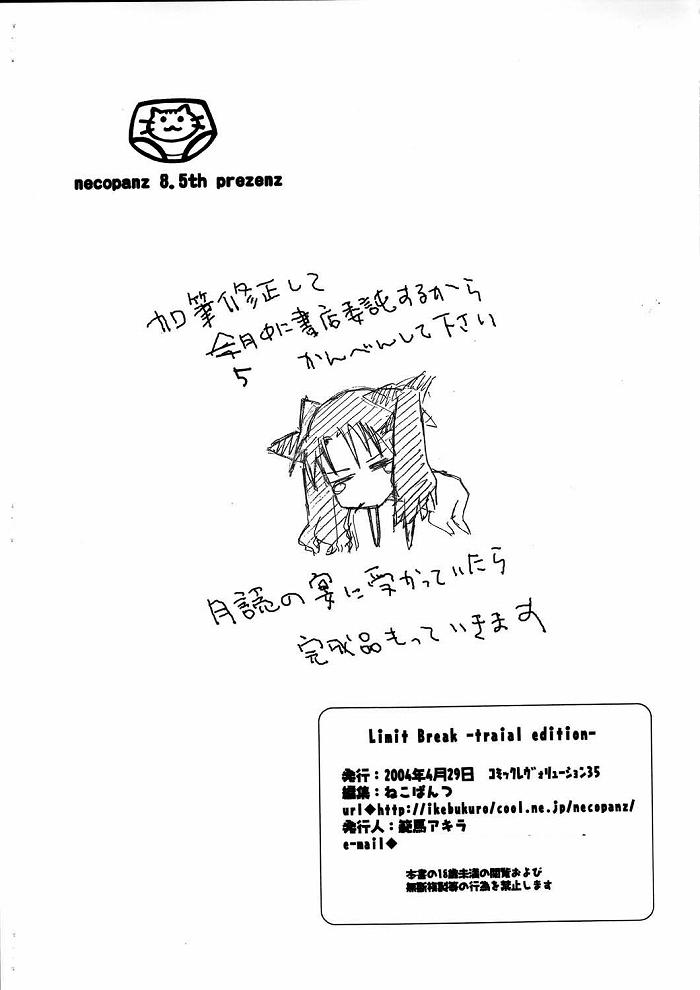 necopanz 8.5th prezenz
加筆修正して
今月中に書店委託するから
5 かんべんして下さい
月認の宴に受かっていたら
完成品もっていきます
Limit Break -traial edition-
発行：2004年4月29日　コミックレヴォリューション35
編集：ねこぱんつ
url◆http://ikebukuro/cool.ne.jp/necopanz/
発行人：範馬アキラ
e-mail◆
本書の18歳未満の閲覧および
無断複製等の行為を禁止します